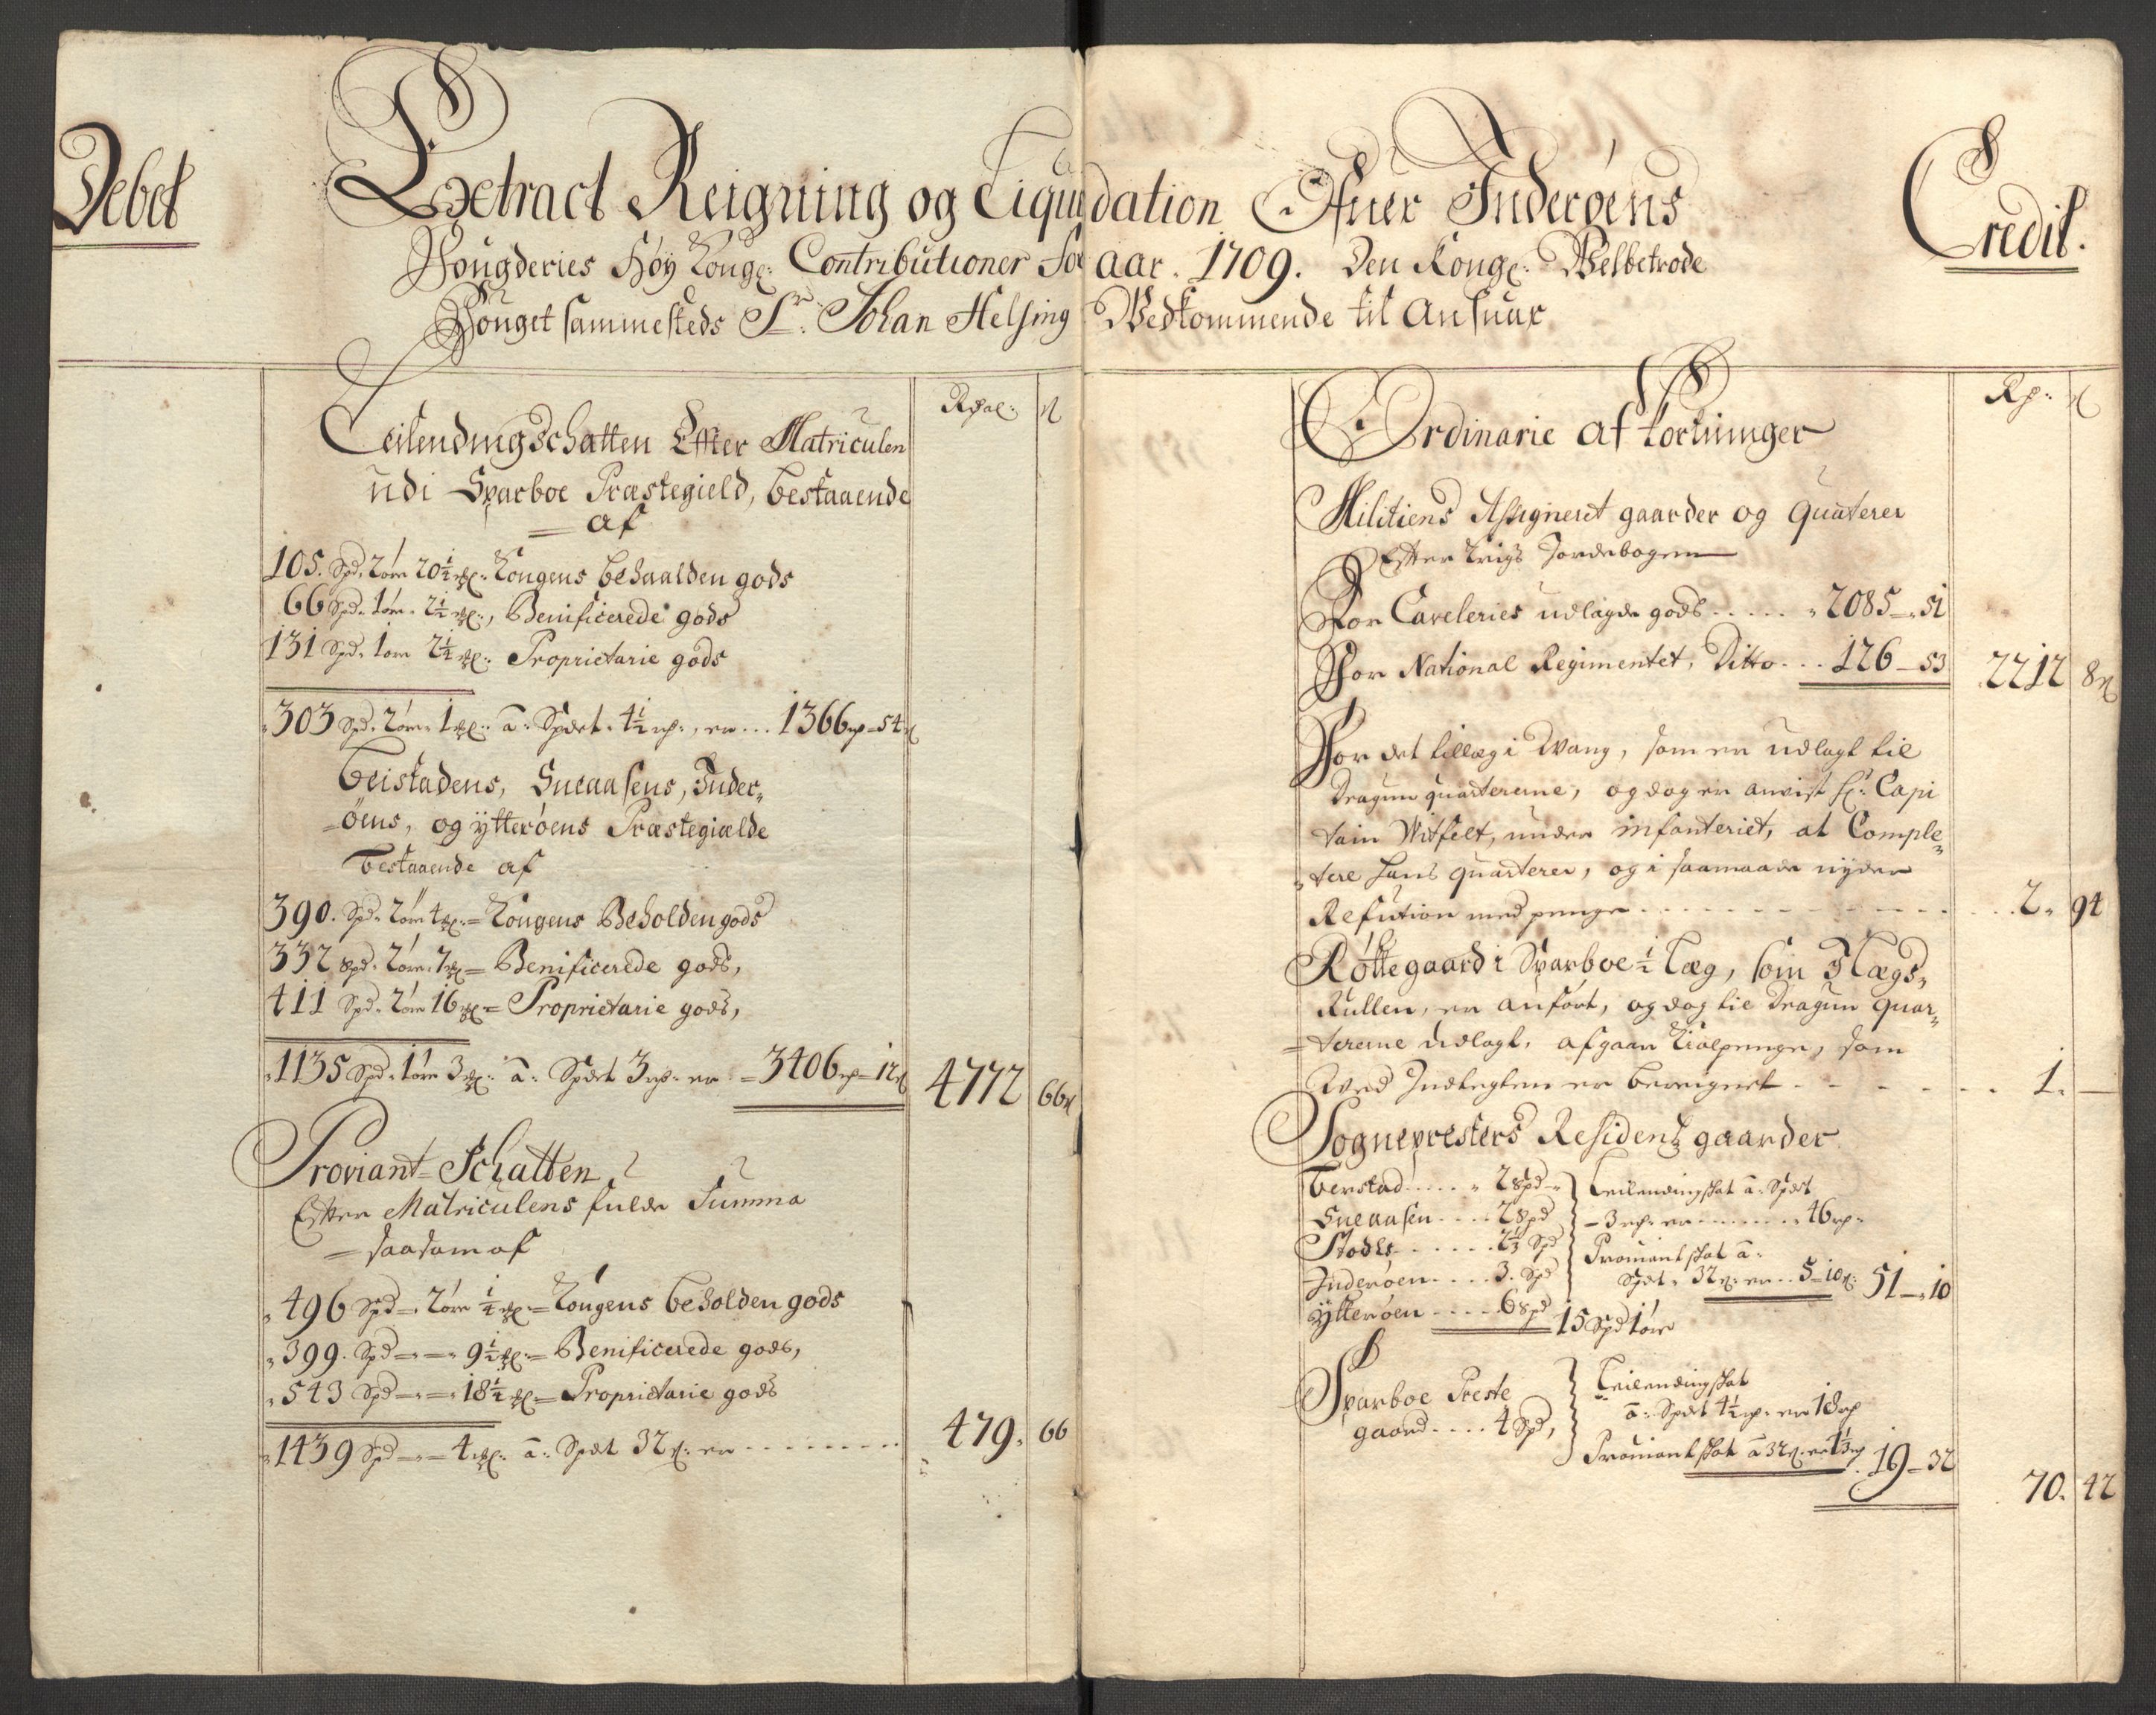 Debet
Extract Reigning og Liquidation Ofuer Inderøens
Credit.
Fougderies Høy Kongl: Contributioner for aar. 1709. Den Kongl: Welbetrode
Fouget sammesteds Sr: Johan Helsing Wedkommende til Ansuar
Rdal:
Leilendingschatten Effter Matriculen
udi Sparboe Præstegield, bestaaende
af
105. Spd. 2øre 20½ ml: Kongens behaalden gods
66 Spd. 1øre. 2½ ml:, Benificerede gods
131 Spd. 1øre 2½ ml: Proprietarie gods
303 Spd. 2øre 1 ml: a: Spdet. 4½ rd:, er... 1366 rd - 54
Beistadens, Sneaasens, Inder-
øens, og ÿtterøens Præstegiælde
bestaaende af
390. Spd. 2øre 4 ml: Kongens Beholden gods
332 spd. 2øre. 7 ml = Benificerede gods,
411 Spd. 2øre 16 ml = Proprietarie gods,
1135 Spd. 1øre 3 ml: a: Spdet 3 rd. er = 3406 rd - 12
4772 66
Proviant-Schatten
Efter Matriculens fulde Summa
saasom af
496 Spd - 2øre ¼ ml = Kongens beholden gods
399. Spd - - 9½ ml = Benificerede gods,
543 Spd - - 18½ ml = Proprietarie gods
1439 Spd - - 4 ml: a: Spdet 32 s: er - - - - - - - -
479. 66
Rd:
Ordinarie afkortninger
Militiens Assigneret gaarder og Quaterer
Efter Krigs Jordebogen
For Caveleries udlagde gods ..... 2085 - 51
For National Regimentet, Ditto... 126 - 53
2212 8
For det tillæg i Wang, som er udlagt til
Dragun quartererne, og dog er anvist Hr: Capi
tain Witfelt, under infanteriet, at Comple-
tere hans quarterer, og i saamaade nyder
Refution med penge - - - - - - - -
2. 94
Røttegaard i Sparboe ½ læg, som I Lægs-
Rullen, er anført, og dog til Dragun Quar-
tererne udlagt, afgaar Kiolpenge, som
Wed Indtegten er beregnet - - - - - -
1. -
Sognepresters Residentz gaarder
Berstad..... 2 spd
Sneaasen.... 2 Spd
Stods...... 2⅓ Spd
Inderøen.... 3. Spd
ÿtterøen ..... 6 spd
15 Spd 1øre
Leilendingskat a: Spdet
- 3 rd. er ....... 46 rd.
Proviantskat a:
Spdet. 32 s: er.. 5 - 10 s: 51 - 10
Sparboe Preste
gaard.... 4 Spd,
Leilendingskat
a: Spdet 4½ rd. er 18 rd
Proviantskat a 32 s. er 1⅓ rd 19 - 32
70. 42